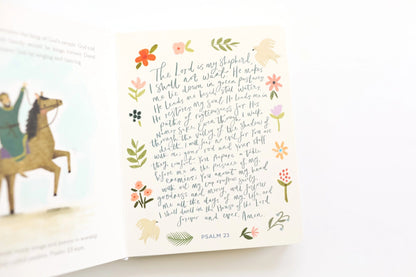 The Lord is my shepherd,
I shall not want. He makes
me lie down in green pastures
He leads me beside still waters.
He restores my soul. He leads me in
paths of righteousness for His
name's sake. Even though I walk
through the valley of the shadow of
death, I will fear no evil, for You are
with me, your rod and your staff
they comfort me. You prepare a table
before me in the presence of my
enemies. You anoint my head
with oil my cup overflows. Surely
goodness and mercy will follow
me all the days of my life and
I shall dwell in the House of the Lord
forever and ever. Amen.
PSALM 23